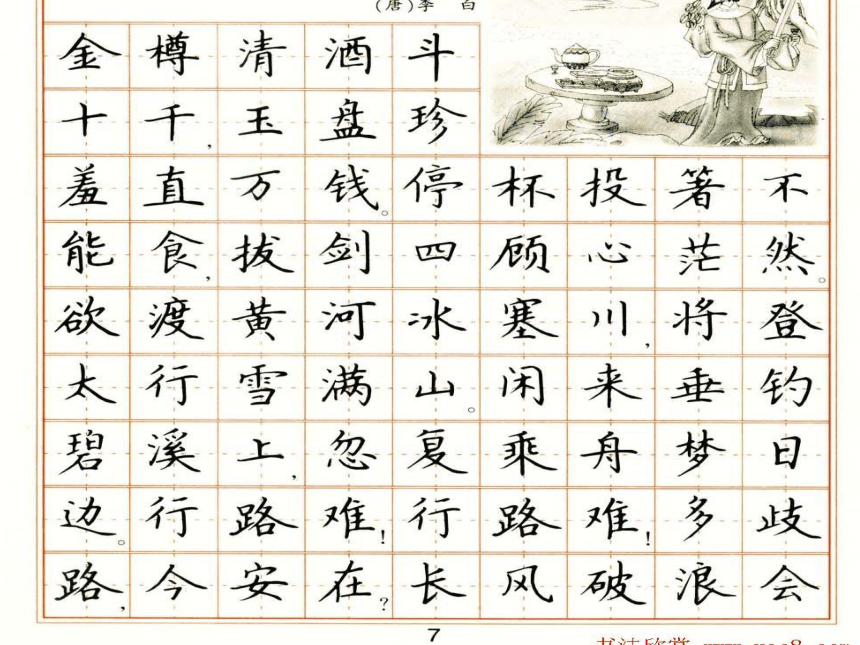 (唐)李 白
金樽清酒斗
十千,玉盘珍
羞直万钱。停杯投箸不
能食,拔剑四顾心茫然。
欲渡黄河冰塞川,将登
太行雪满山。闲来垂钓
碧溪上,忽复乘舟梦日
边。行路难!行路难!多歧
路,今安在?长风破浪会
7
书法欣赏